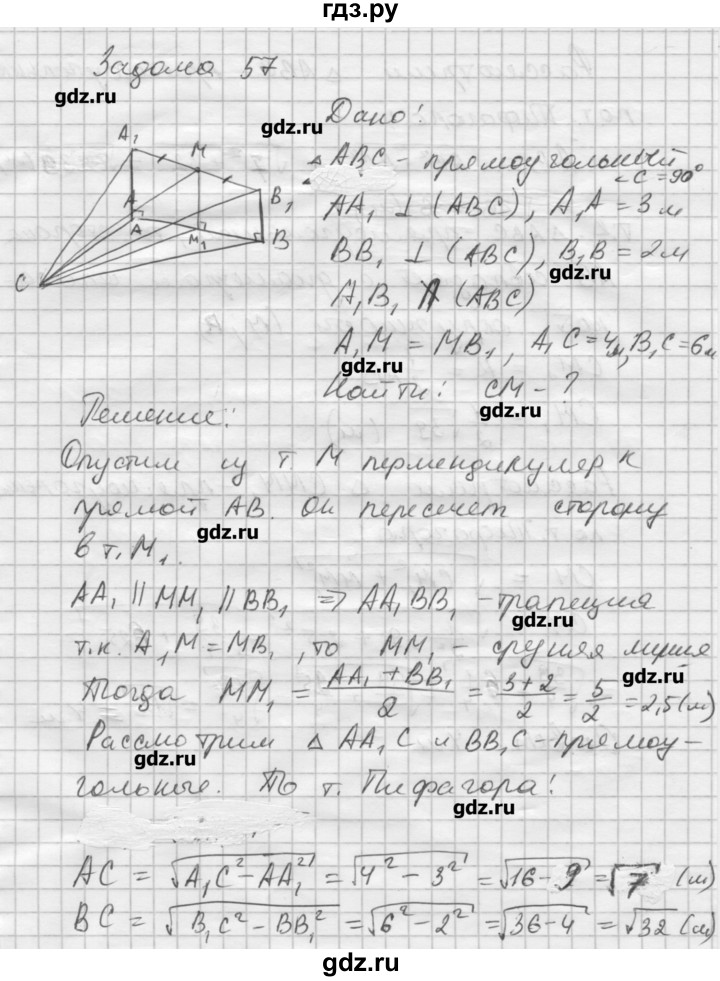 гдз.ру
Задача 57
gdz.ru
Дано:
gdz.ru
A₁ M B₁ A A M₁ B C
△ ABC – прямоугольный
∠C = 90°
AA₁ ⊥ (ABC), A₁A = 3 м
BB₁ ⊥ (ABC), B₁B = 2 м
gdz.ru
A₁B₁ ∦ (ABC)
A₁M = MB₁, A₁C = 4м, B₁C = 6м
gdz.ru
Найти: CM – ?
gdz.ru
Решение:
Опустим из т. M перпендикуляр к
прямой AB. Он пересечет сторону
gdz.ru
в т. M₁.
AA₁ || MM₁ || BB₁ => AA₁BB₁ – трапеция
gdz.ru
т.к. A₁M = MB₁, то MM₁ – средняя линия
gdz.ru
Тогда MM₁ = (AA₁ + BB₁)/2 = (3+2)/2 = 5/2 = 2,5 (м)
Рассмотрим △ AA₁C и BB₁C – прямоу-
gdz.ru
гольные. По т. Пифагора:
gdz.ru
AC = √(A₁C² – AA₁²) = √(4² – 3²) = √(16 – 9) = √7 (м)
BC = √(B₁C² – BB₁²) = √(6² – 2²) = √(36 – 4) = √32 (м)
gdz.ru